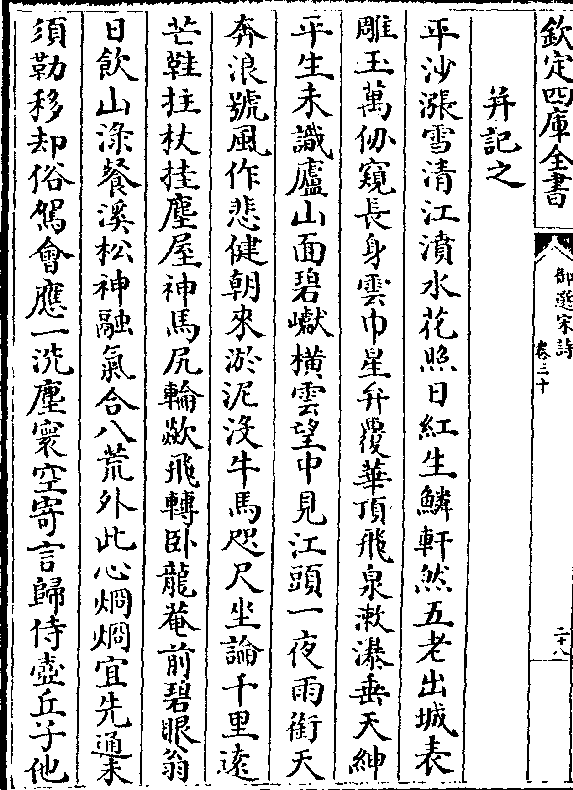 欽定四庫全書
御選宋詩
卷三十
二十八
并記之
平沙漲雪清江濆水花照日紅生鱗軒然五老出城表
雕玉萬仞窺長身雲巾星弁覆華頂飛泉漱瀑垂天紳
平生未識廬山面碧巘橫雲望中見江頭一夜雨銜天
奔浪號風作悲健朝來淤泥沒牛馬咫尺坐論千里遠
芒鞋拄杖挂塵屋神馬尻輪歘飛轉臥龍菴前碧眼翁
日飲山淥餐溪松神融氣合八荒外此心烱烱宜先通未
須勒移却俗駕會應一洗塵寰空寄言歸侍壺丘子他